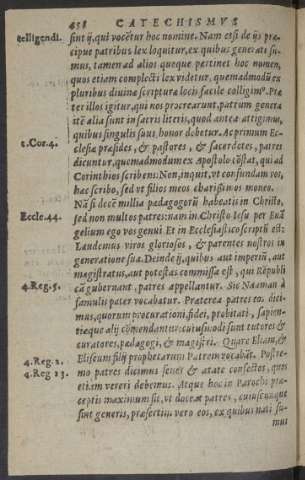 458 CATECHISMVS
telligendi. sint ij, qui vocētur hoc nomine. Nam etsi de ijs præ-
cipue patribus lex loquitur, ex quibus generati su-
mus, tamen ad alios quoque pertinet hoc nomen,
quos etiam complecti lex videtur, quemadmodū ex
pluribus diuinæ scripturæ locis facile colligimꝰ. Præ
ter illos igitur, qui nos procrearunt, patrum genera
itē alia sunt in sacris literis, quod antea attigimus,
quibus singulis suus honor debetur. Ac primum Ec-
1. Cor. 4. clesiæ præsides, & pastores, & sacerdotes, patres
dicuntur, quemadmodum ex Apostolo cōstat, qui ad
Corinthios scribens: Non, inquit, vt confundam vos,
hæc scribo, sed vt filios meos charissimos moneo.
Nā si decē millia pædagogorū habeatis in Christo,
Eccle. 44. sed non multos patres: nam in Christo Iesu per Euā
gelium ego vos genui. Et in Ecclesiastico scriptū est:
Laudemus viros gloriosos, & parentes nostros in
generatione sua. Deinde ij, quibus aut imperiū, aut
magistratus, aut potestas commissa est, qui Rēpubli
4. Reg. 5. cā gubernant, patres appellantur. Sic Naaman à
famulis pater vocabatur. Præterea patres eos dici-
mus, quorum procurationi, fidei, probitati, sapien-
tiæque alij cōmendantur: cuiusmodi sunt tutores &
curatores, pædagogi, & magistri. Quare Eliam, &
4. Reg. 2. Eliseum filij prophetarum Patrem vocabāt. Postre-
4. Reg 13. mo patres dicimus senes & ætate confectos, quos
etiam vereri debemus. Atque hoc in Parochi præ-
ceptis maximum sit, vt doceat patres, cuiuscunque
sint generis, præsertim vero eos, ex quibus nati su-
mus